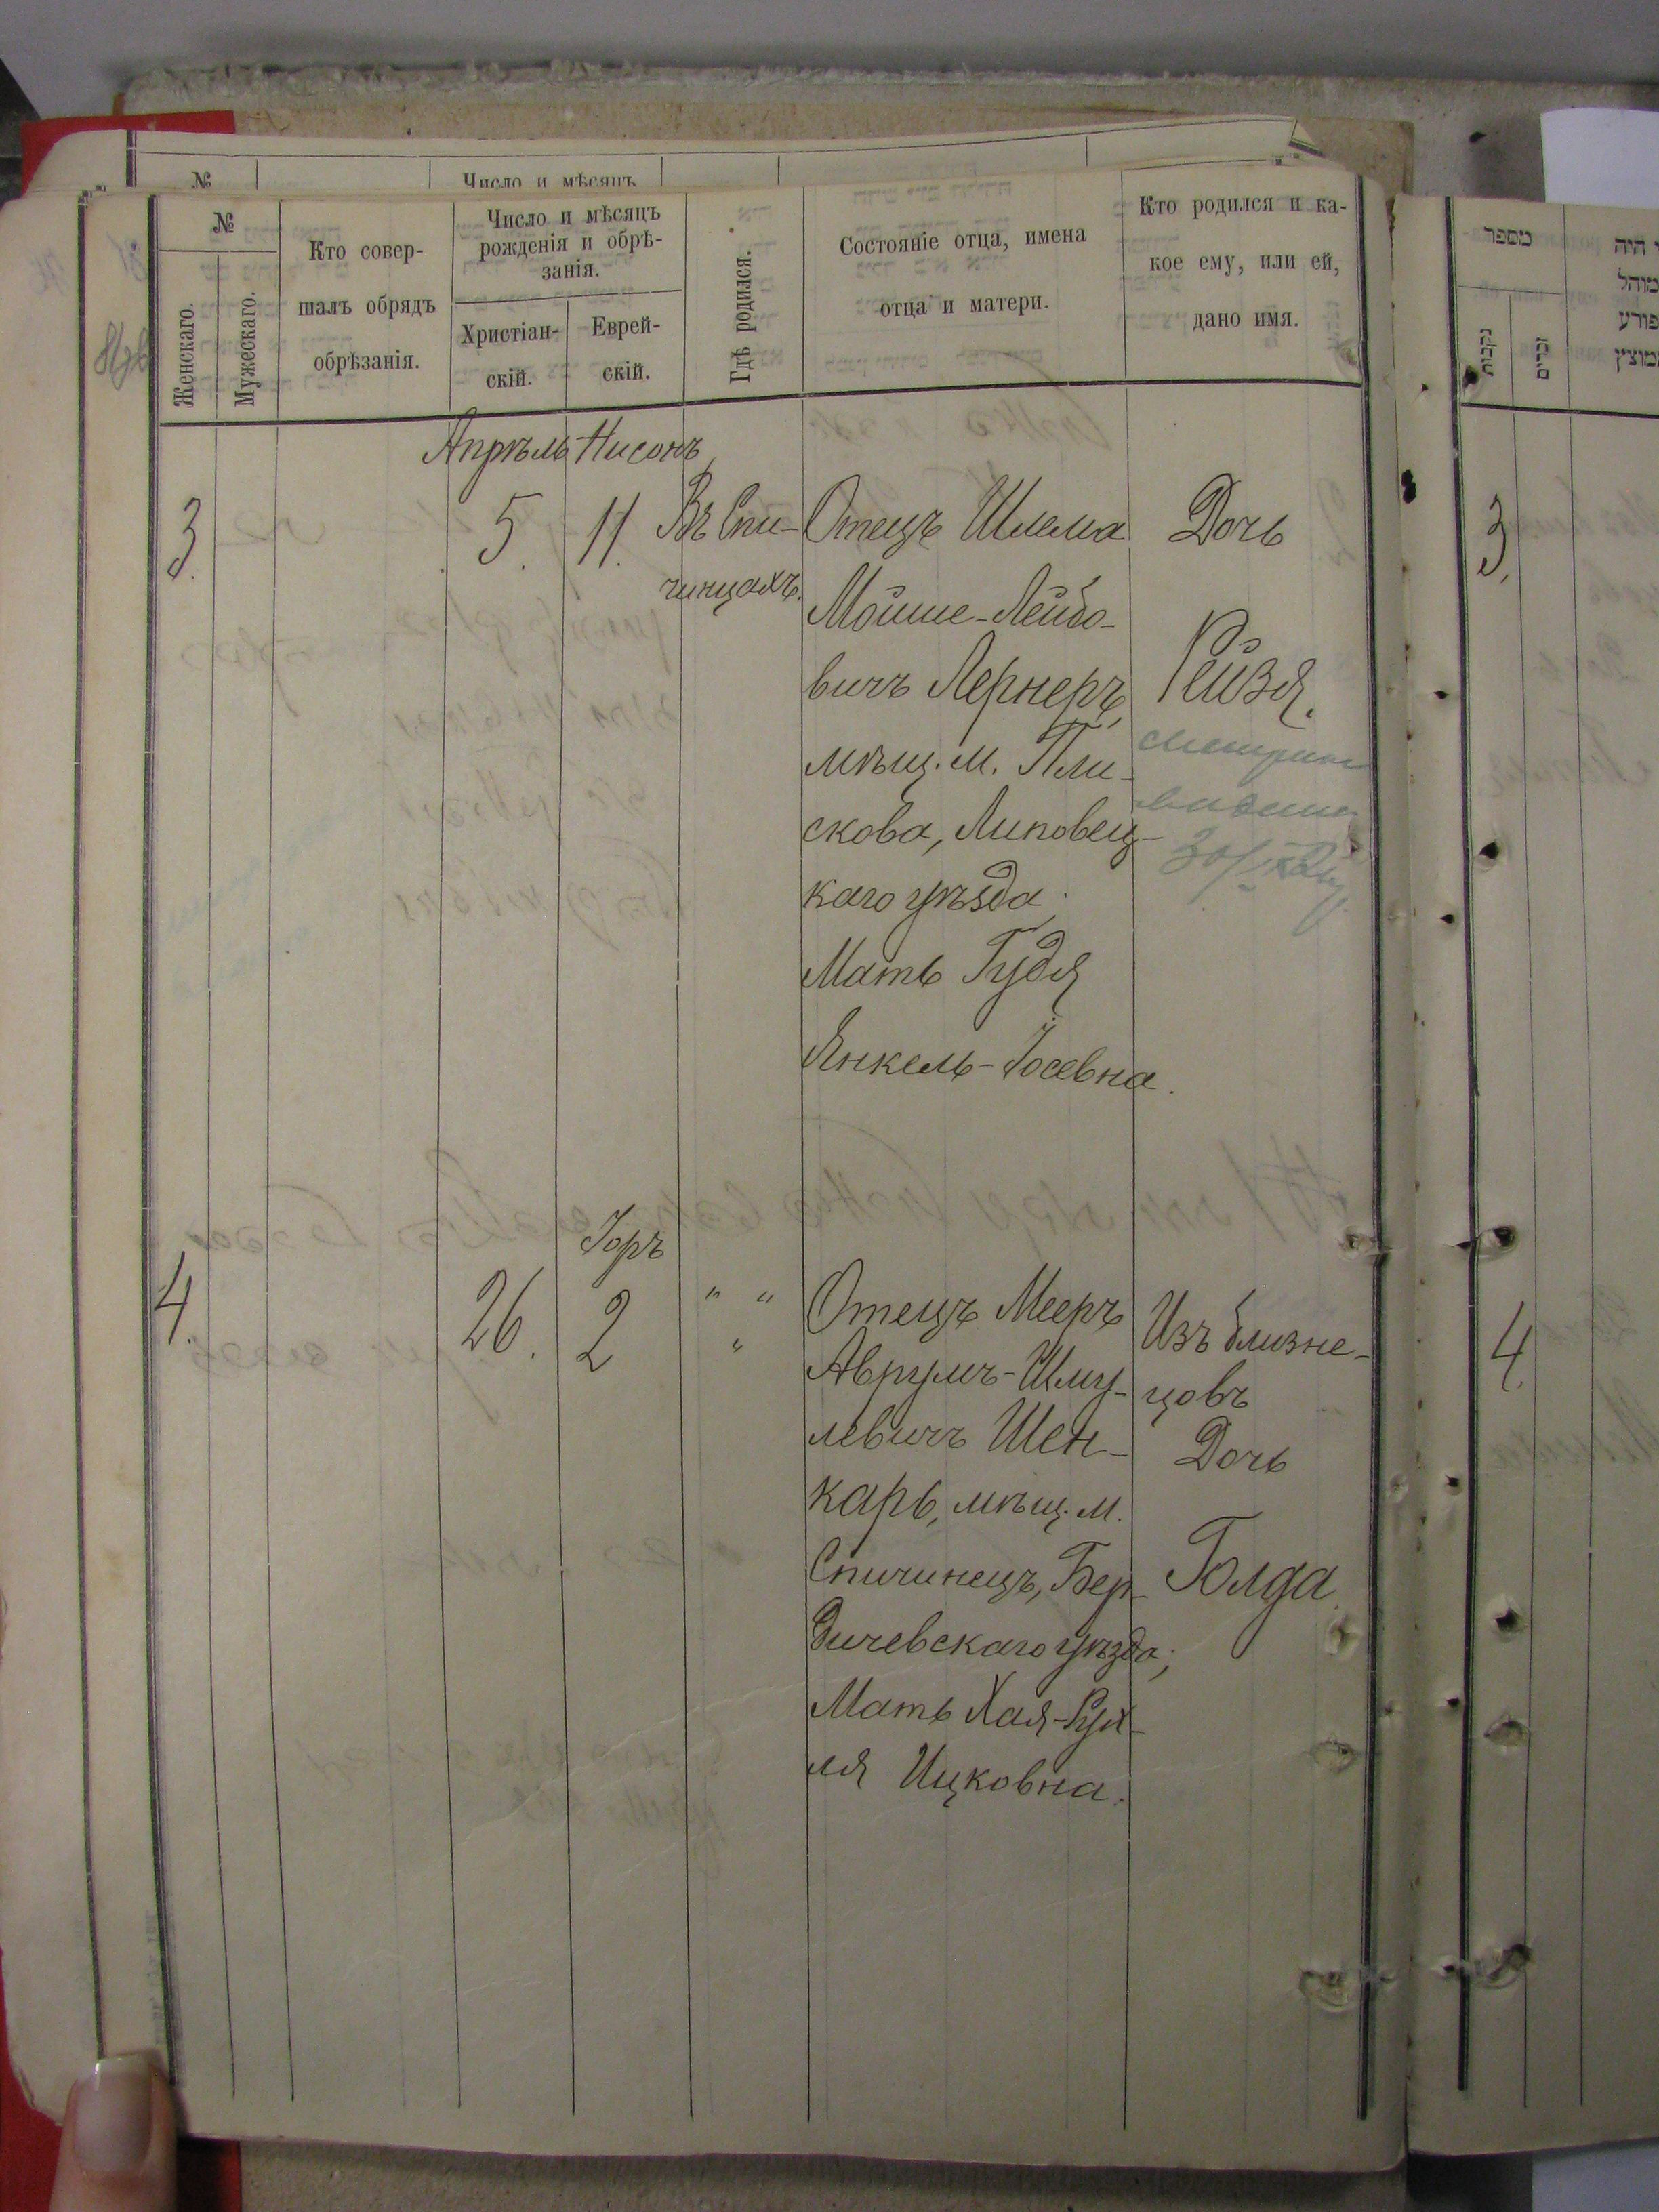 № Число и мѣсяцъ
№
Женскаго.
Мужескаго.
Кто совер-
шалъ обрядъ
обрѣзанія.
Число и мѣсяцъ
рожденія и обрѣ-
занія.
Христіан-
скій.
Еврей-
скій.
Гдѣ родился.
Состояніе отца, имена
отца и матери.
Кто родился и ка-
кое ему, или ей,
дано имя.
Апрѣль Нисонъ
3. 5. 11. Въ Спи-
чинцахъ.
Отецъ Шлема
Мойше-Лейбо-
вичъ Лернеръ,
мѣщ. м. Пли-
скова, Липовец-
каго уѣзда;
Мать Гудя
Янкель-Іосевна.
Дочь
Рейзя.
Іоръ
4. 26. 2 " "
"
Отецъ Мееръ
Аврумъ-Шму-
левичъ Шен-
карь, мѣщ. м.
Спичинецъ, Бер-
дичевскаго уѣзда;
Мать Хая-Рух-
ля Ицковна.
Изъ близне-
цовъ
Дочь
Голда
מספר
נקבות
זכרים
היה
מוהל
פורע
3.
4.